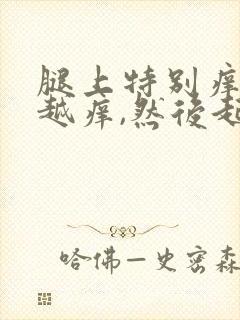 腿上特别痒
越痒,然后起
哈佛—史密森